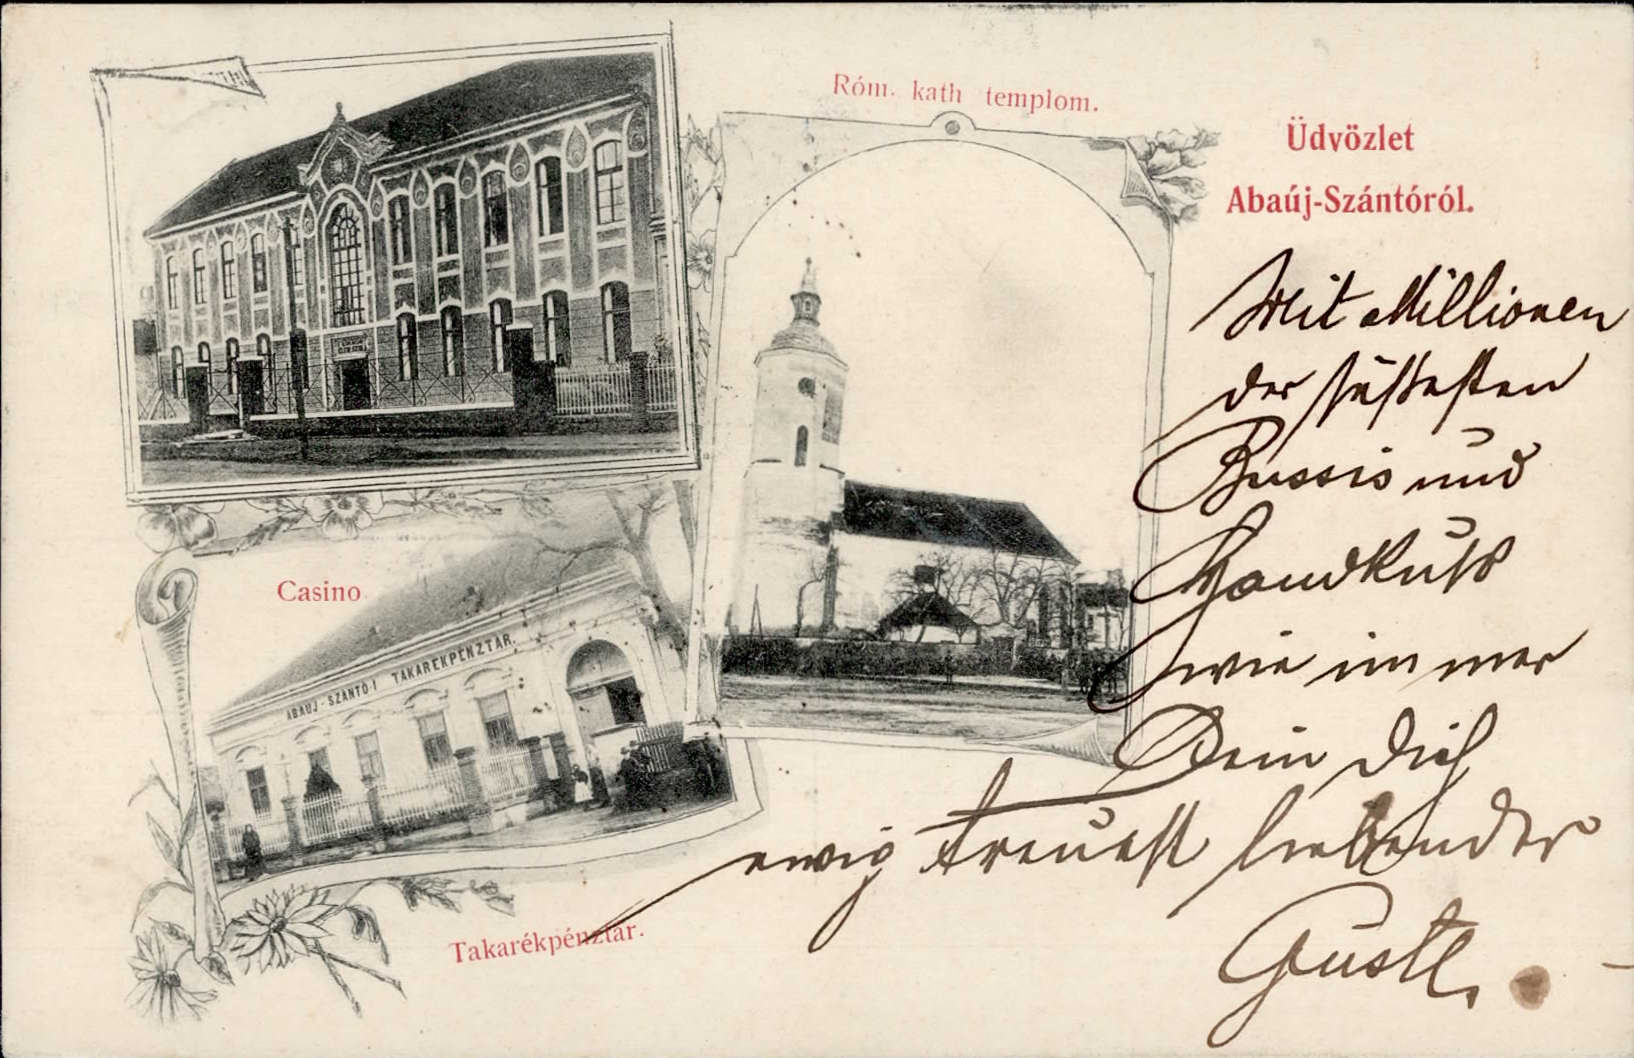 Róm. kath templom.
Üdvözlet
Abaúj-Szántóról.
Casino
ABAUJ-SZÁNTÓI TAKARÉKPÉNZTÁR.
Takarékpénztár.
Mit Millionen
der süßesten
Bussis und
Handkuß
wie immer
Dein Dich
ewig treuest liebender
Gustl.